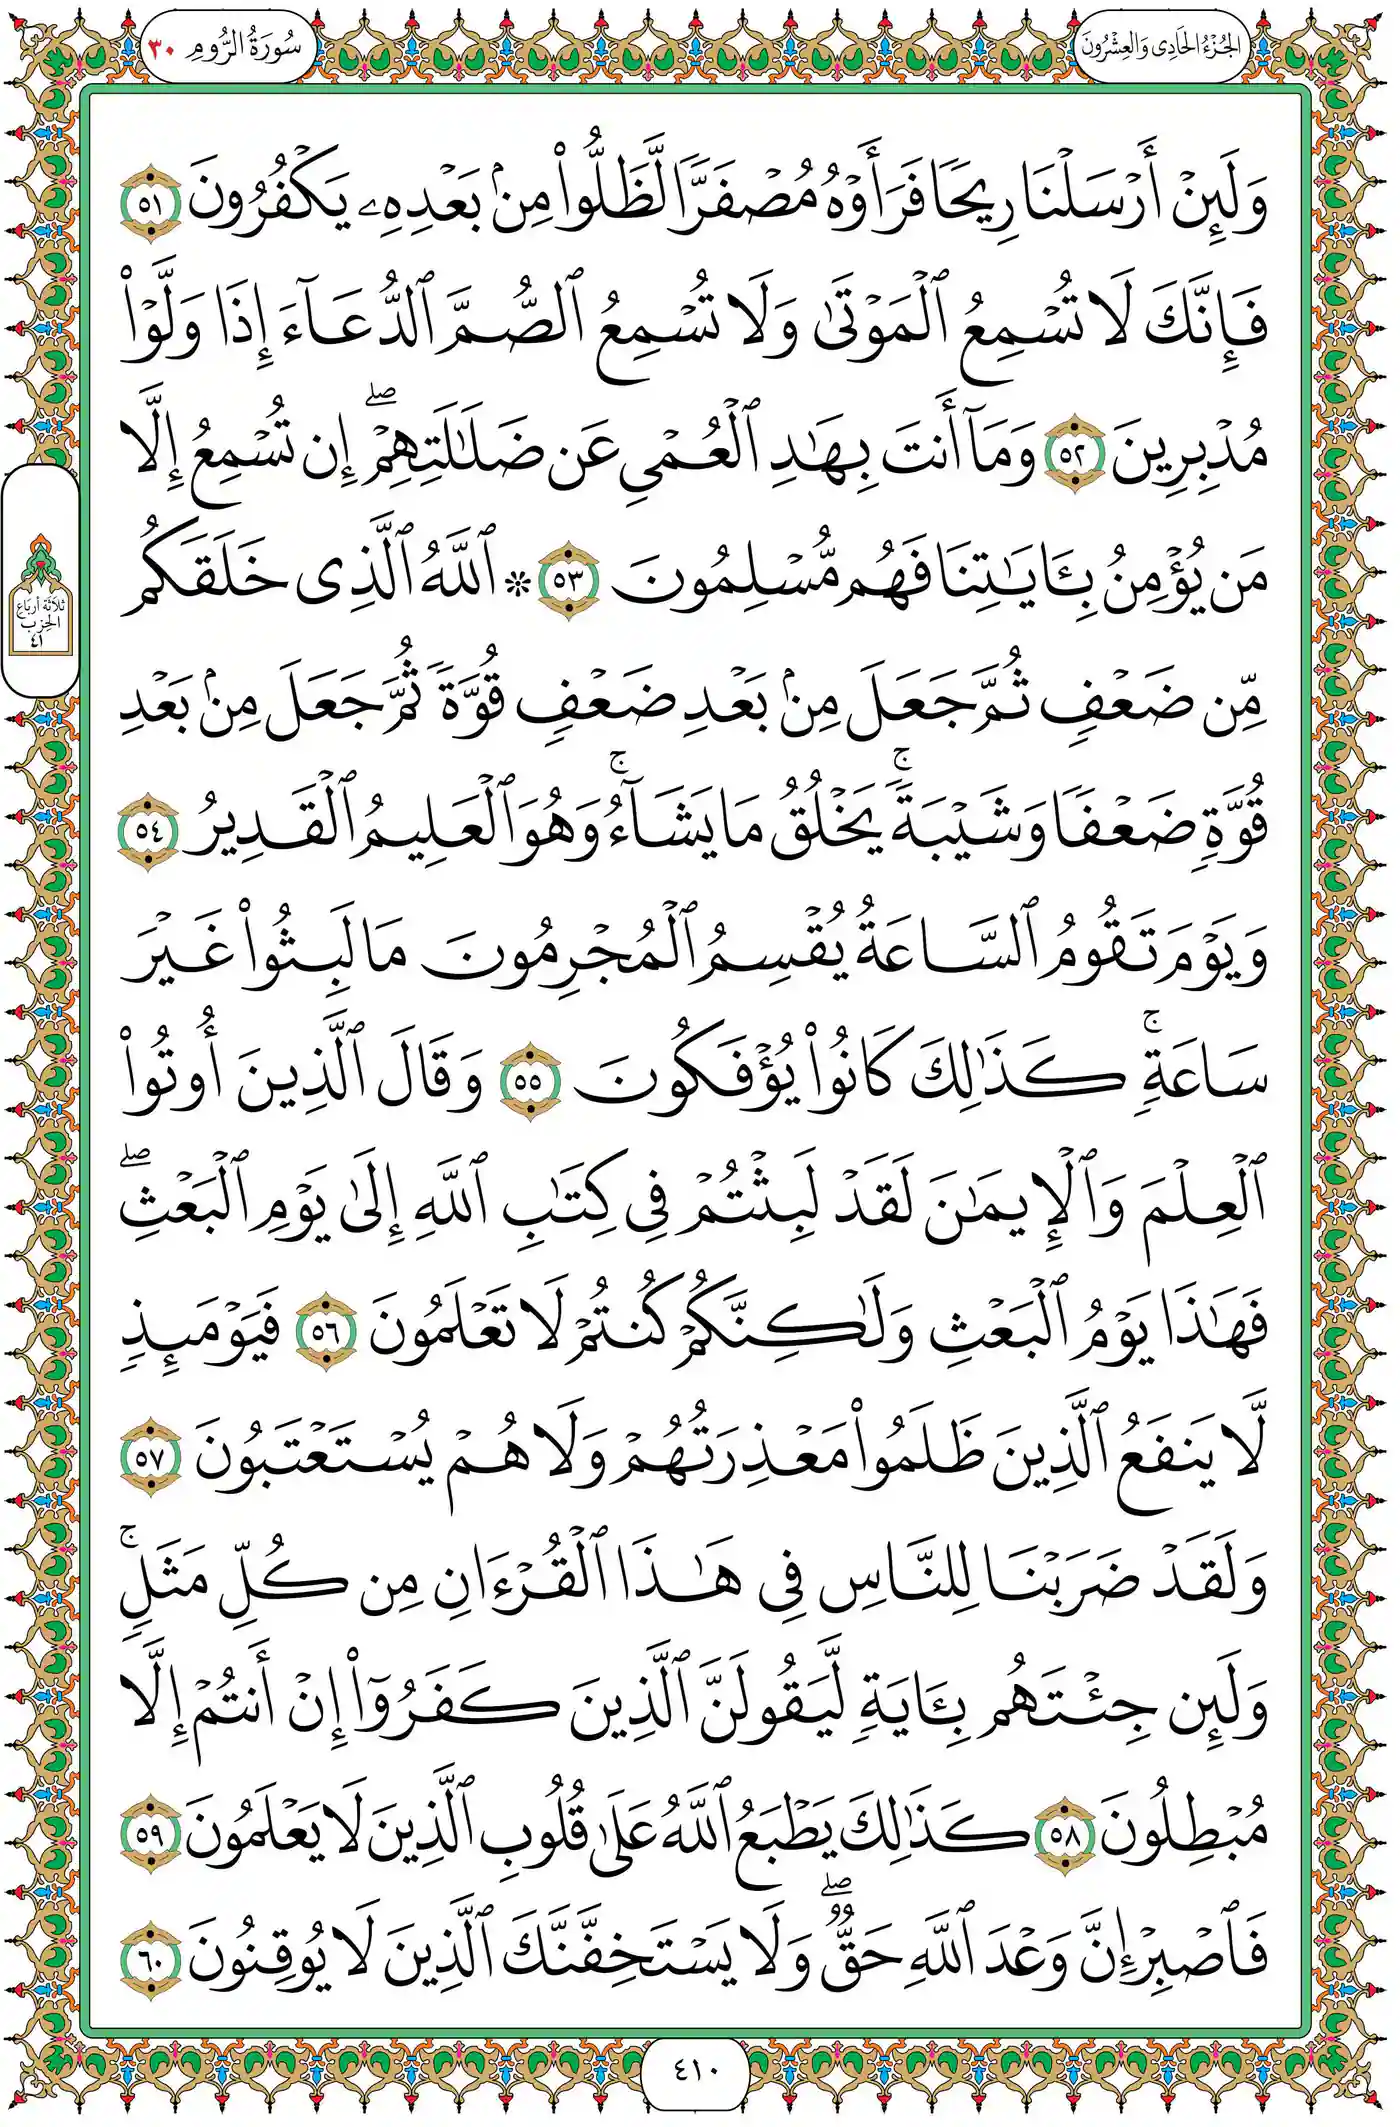 الجُزْءُ الحَادِى وَالعِشْرُونَ
سُورَةُ الرُّومِ ٣٠
وَلَئِنْ أَرْسَلْنَا رِيحًا فَرَأَوْهُ مُصْفَرًّا لَّظَلُّوا۟ مِنۢ بَعْدِهِۦ يَكْفُرُونَ ٥١
فَإِنَّكَ لَا تُسْمِعُ ٱلْمَوْتَىٰ وَلَا تُسْمِعُ ٱلصُّمَّ ٱلدُّعَآءَ إِذَا وَلَّوْا۟
مُدْبِرِينَ ٥٢ وَمَآ أَنتَ بِهَٰدِ ٱلْعُمْىِ عَن ضَلَٰلَتِهِمْ ۖ إِن تُسْمِعُ إِلَّا
مَن يُؤْمِنُ بِـَٔايَٰتِنَا فَهُم مُّسْلِمُونَ ٥٣ * ٱللَّهُ ٱلَّذِى خَلَقَكُم
مِّن ضَعْفٍ ثُمَّ جَعَلَ مِنۢ بَعْدِ ضَعْفٍ قُوَّةً ثُمَّ جَعَلَ مِنۢ بَعْدِ
قُوَّةٍ ضَعْفًا وَشَيْبَةً ۚ يَخْلُقُ مَا يَشَآءُ ۚ وَهُوَ ٱلْعَلِيمُ ٱلْقَدِيرُ ٥٤
وَيَوْمَ تَقُومُ ٱلسَّاعَةُ يُقْسِمُ ٱلْمُجْرِمُونَ مَا لَبِثُوا۟ غَيْرَ
سَاعَةٍ ۚ كَذَٰلِكَ كَانُوا۟ يُؤْفَكُونَ ٥٥ وَقَالَ ٱلَّذِينَ أُوتُوا۟
ٱلْعِلْمَ وَٱلْإِيمَٰنَ لَقَدْ لَبِثْتُمْ فِى كِتَٰبِ ٱللَّهِ إِلَىٰ يَوْمِ ٱلْبَعْثِ ۖ
فَهَٰذَا يَوْمُ ٱلْبَعْثِ وَلَٰكِنَّكُمْ كُنتُمْ لَا تَعْلَمُونَ ٥٦ فَيَوْمَئِذٍ
لَّا يَنفَعُ ٱلَّذِينَ ظَلَمُوا۟ مَعْذِرَتُهُمْ وَلَا هُمْ يُسْتَعْتَبُونَ ٥٧
وَلَقَدْ ضَرَبْنَا لِلنَّاسِ فِى هَٰذَا ٱلْقُرْءَانِ مِن كُلِّ مَثَلٍ ۚ
وَلَئِن جِئْتَهُم بِـَٔايَةٍ لَّيَقُولَنَّ ٱلَّذِينَ كَفَرُوٓا۟ إِنْ أَنتُمْ إِلَّا
مُبْطِلُونَ ٥٨ كَذَٰلِكَ يَطْبَعُ ٱللَّهُ عَلَىٰ قُلُوبِ ٱلَّذِينَ لَا يَعْلَمُونَ ٥٩
فَٱصْبِرْ إِنَّ وَعْدَ ٱللَّهِ حَقٌّ ۖ وَلَا يَسْتَخِفَّنَّكَ ٱلَّذِينَ لَا يُوقِنُونَ ٦٠
ثَلَاثَة أَربَاع
الحِزب
٤١
٤١٠